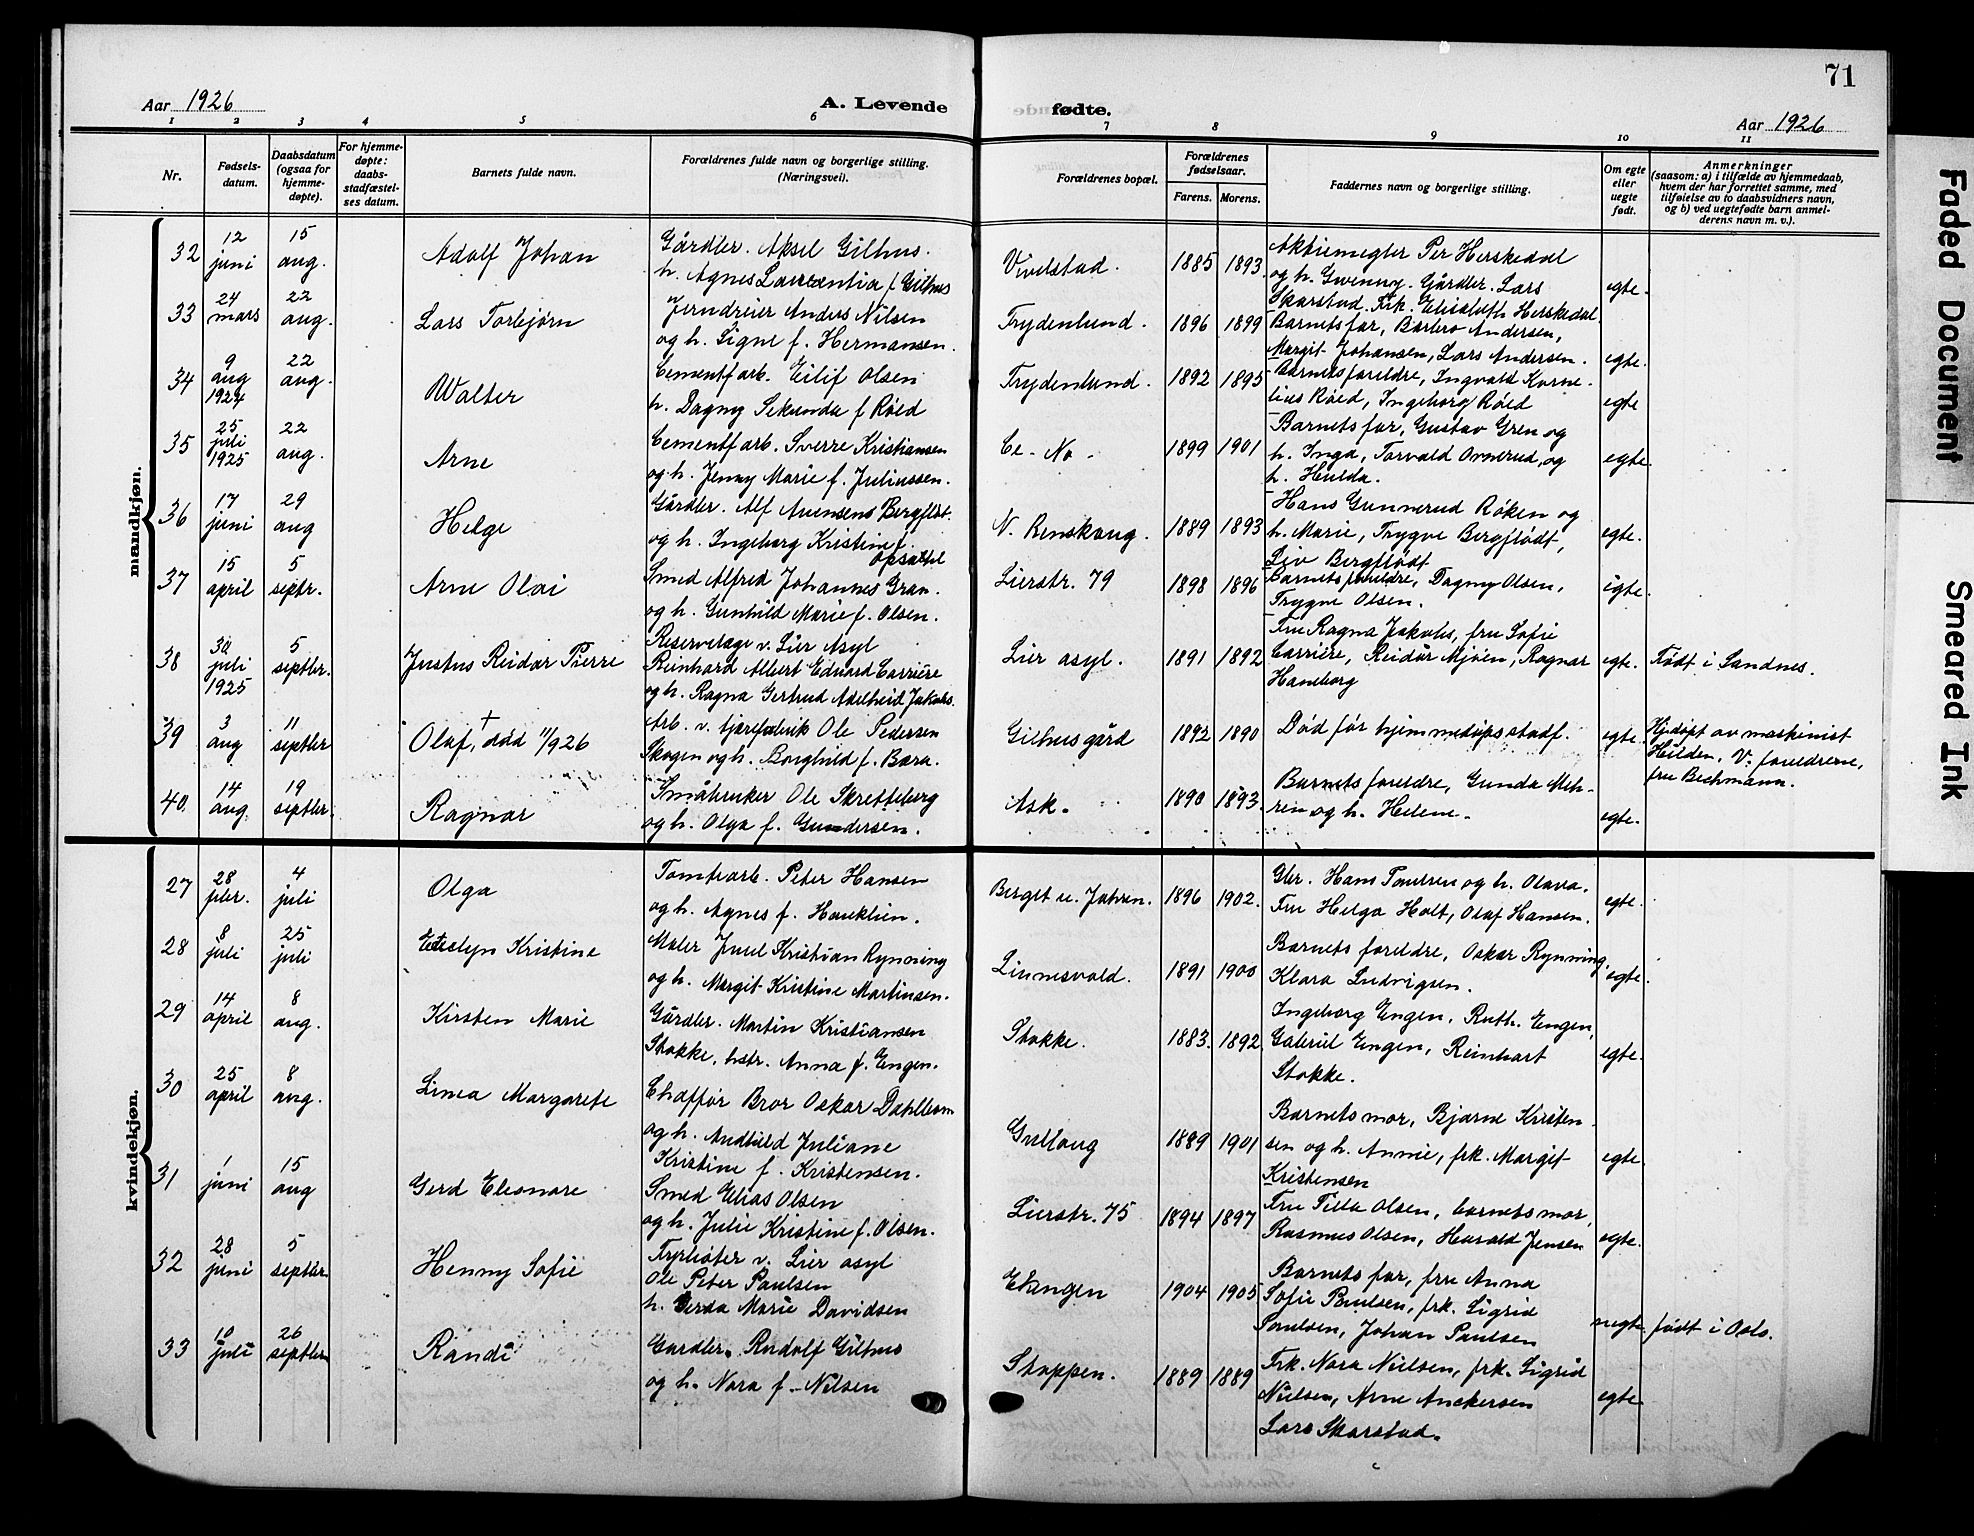 71
Aar 1926
A. Levende
fødte.
Aar 1926
1 2 3 4 5 6 7 8 9 10 11
Nr.
Fødsels-
datum.
Daabsdatum
(ogsaa for
hjemme-
døpte).
For hjemme-
døpte:
daabs-
stadfæstel-
ses datum.
Barnets fulde navn.
Forældrenes fulde navn og borgerlige stilling.
(Næringsvei).
Forældrenes bopæl.
Forældrenes
fødselsaar.
Farens. Morens.
Faddernes navn og borgerlige stilling.
Om egte
eller
uegte
født.
Anmerkninger
(saasom: a) i tilfælde av hjemmedaab,
hvem der har forrettet samme, med
tilføielse av to daabsvidners navn,
og b) ved uegtefødte barn anmel-
derens navn m. v.).
mandkjøn.
32
12
juni
15
aug.
Adolf Johan
Gårdbr. Aksel Gilhus.
h. Agnes Laurentia f. Gilhus
Vivelstad.
1885 1893.
Aktiemegler Per Herskedal
og h. Gwenny. Gårdbr. Lars
Skarstad. Frk. Elisabeth Herskedal.
egte.
33
24
mars
22
aug.
Lars Torbjørn
Jerndreier Anders Nilsen
og h. Signe f. Hermansen.
Frydenlund.
1896 1899
Barnets far, Barbro Andersen,
Margit Johansen, Lars Andersen.
egte.
34
9
aug
1924
22
aug.
Walter
Cementfarb. Eilif Olsen
h. Dagny Sekunda f Røed
Frydenlund.
1892 1895
Barnets foreldre, Ingvald Korne-
lius Røed, Ingeborg Røed
egte
35
25
juli
1925
22
aug.
Arne
Cementfarb. Sverre Kristiansen
og h. Jenny Marie f. Juliussen.
Ce - No -
1899 1901
Barnets far, Gustav Gren og
h. Inga, Torvald Ovnerud, og
h. Hulda.
egte.
36
17
juni
29
aug
Helge
Gårdbr. Alf Avensens Bergflødt.
og h. Ingeborg Kristine f.
Opsahl
N. Renskaug.
1889 1893
Hans Gunnerud Røken og
h. Marie, Trygve Bergflødt,
Liv Bergflødt
egte.
37
15
april
5
septr.
Arne Olai
Smed Alfred Johannes Gran.
og h. Gunhild Marie f. Olsen.
Lierstr. 79
1898 1896
Barnets foreldre, Dagny Olsen,
Trygve Olsen.
egte.
38
30
juli
1925
5
septbr.
Justus Reidar Pierre
Reservelæge v. Lier Asyl
Reinhard Albert Edvard Carrière
og h. Ragna Gertrud Adelheid Jakobs.
Lier asyl.
1891 1892
Fru Ragna Jakobs, fru Sofie
Carrière, Reidar Mjöen, Ragnar
Haneborg
egte.
Født i Sandnes.
39
3
aug
11
septbr
Olaf, + død 11/9 26
Arb. v. tjærefabrik Ole Pedersen
Skogen og h. Borghild f. Bara.
Gilhusgård
1892 1890
Død før hjemmedøps stadf.
egte.
Hjdøpt av maskinist
Hilden. V: foreldrene,
fru Bechmann.
40.
14
aug.
19
septbr.
Ragnar
Småbruker Ole Skretteberg
og h. Olga f. Gundersen.
Ask.
1890 1893.
Barnets foreldre, Gunda Meh-
ren og h. Helene.
egte.
kvindekjøn.
27
28
febr.
4
juli
Olga
Tomtearb. Peter Hansen
og h. Agnes f. Hauklien.
Berget u. Jahren.
1896 1902.
Gbr. Hans Poulsen og h. Olava.
Fru Helga Holt, Olaf Hansen.
egte.
28
8
juli
25
juli
Evelyn Kristine
Maler Juul Kristian Rynning
og h. Margit Kristine Martinsen.
Linnesvold.
1891 1900
Barnets foreldre, Oskar Rynning,
Klara Ludvigsen.
egte.
29
14
april
8
aug.
Kirsten Marie
Gårdbr. Martin Kristiansen
Stokke, hstr. Anna f. Engen.
Stokke.
1883. 1892.
Ingeborg Engen, Ruth. Engen,
Gabriel Engen, Reinhart
Stokke.
egte.
30
25
april
8
aug.
Linea Margarete
Chaffør Bror Oskar Dahlbom
og h. Andhild Juliane
Kristine f. Kristensen.
Gullaug
1889 1901
Barnets mor, Bjarne Kristen-
sen og h. Annie, frk. Margit
Kristensen
egte.
31
1
juni
15
aug
Gerd Eleonore
Smed Elias Olsen
og h. Julie Kristine f. Olsen.
Lierstr. 75
1894 1897
Fru Tilla Olsen, barnets mor,
Rasmus Olsen, Harald Jensen
egte.
32
28
juni
5
septbr
Henny Sofie
Fyrbøter v. Lier asyl
Ole Peter Paulsen
h. Gerda Marie Davidsen
Evangen
1904 1905
Barnets far, fru Anna
Sofie Paulsen, frk. Sigrid
Paulsen, Johan Paulsen
uegte
født i Oslo.
33
10
juli
26
septbr
Randi
Gardbr. Rudolf Gilhus
og h. Nora f. Nilsen
Stoppen.
1889 1889
Frk. Nora Nielsen, frk. Sigrid
Nielsen, Arne Anckersen
Lars Skarstad.
egte.
Faded Document
Smeared Ink